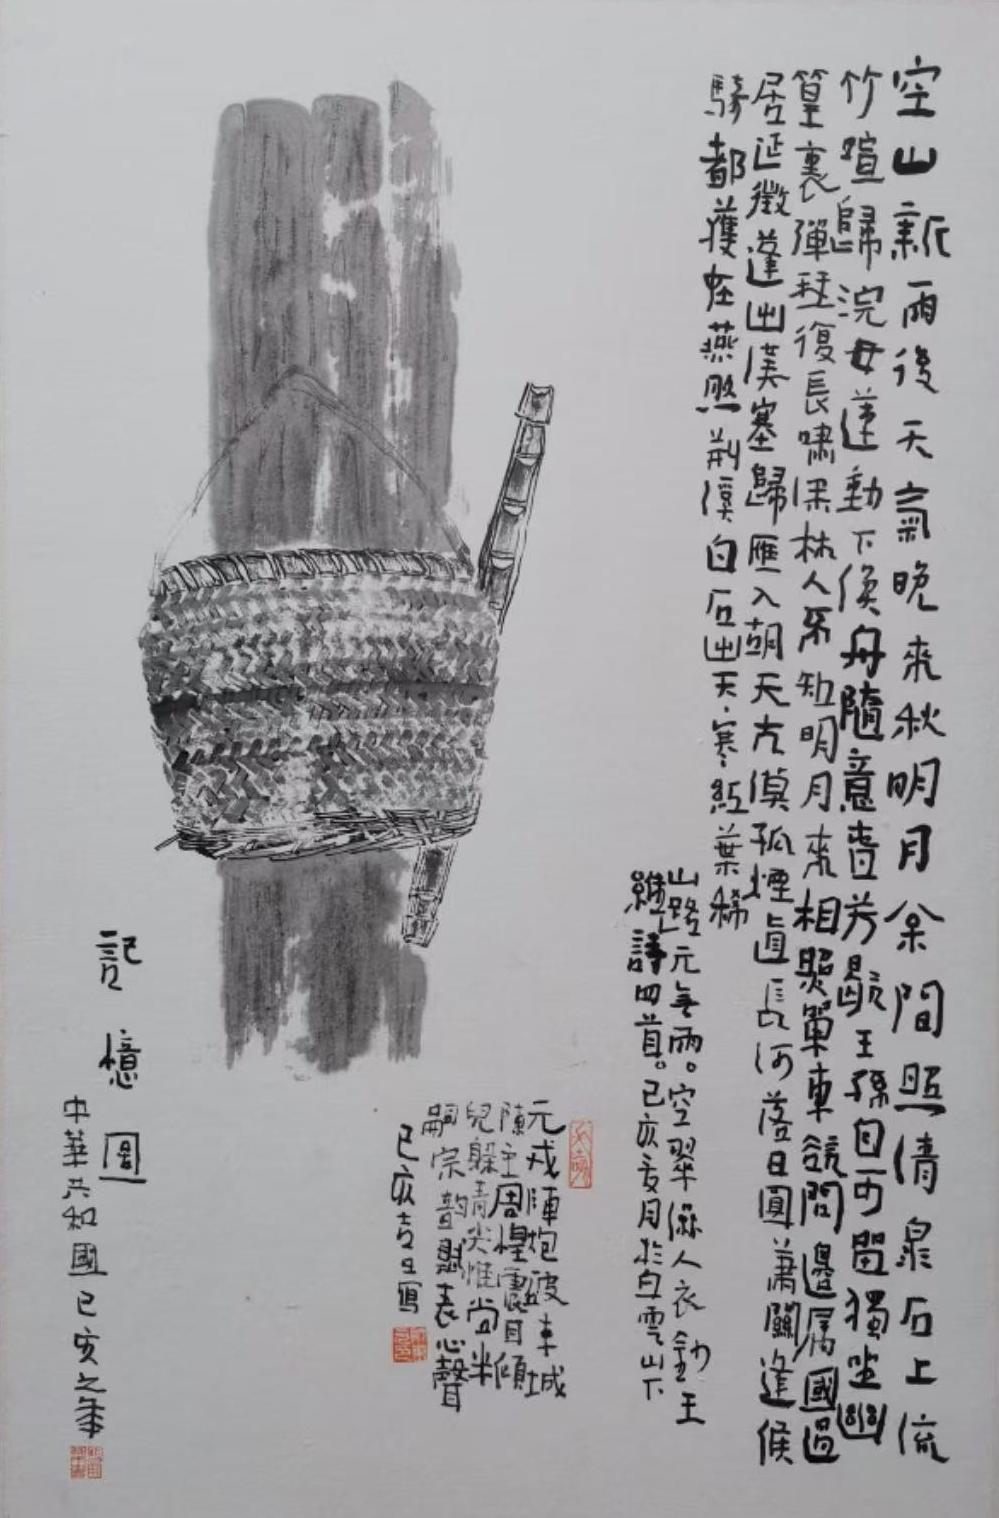 空山新雨後天氣晚來秋明月枀間照清泉石上流
竹喧歸浣女蓮動下渙舟隨意春芳歇王孫自可留獨坐幽
篁裏彈琴復長嘯深林人不知明月來相照單車欲問邊屬國過
居延徵蓬出漢塞歸雁入胡天大漠孤煙直長河落日圓蕭關逢候
騎都護在燕然荊溪白石出天寒紅葉稀
山路元無雨。空翠濕人衣錄王
維詩四首。己亥夏月於白雲山下
元戎陣炮破東城
陳主周惶震目傾
兒躲青尖惟尚半
嗣宗韵慰表心聲
己亥吉日寫
記憶圖
中華共和國己亥之年